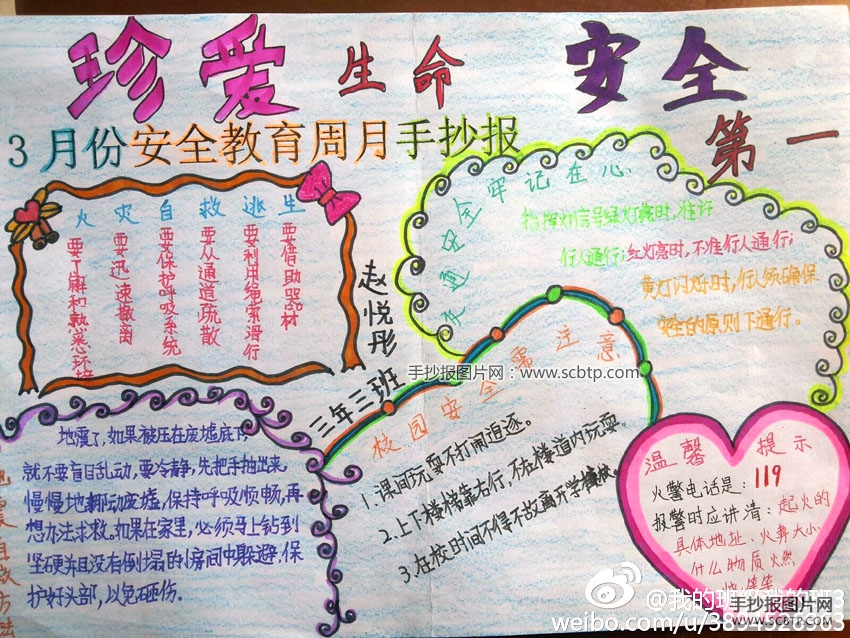 珍爱生命 安全第一
3月份安全教育周月手抄报
火灾自救逃生
要了解和熟悉环境
要迅速撤离
要保护呼吸系统
要从通道疏散
要利用绳索滑行
要借助器材
赵悦彤
三年三班
交通安全牢记在心
指挥灯信号绿灯亮时,准许
行人通行;红灯亮时,不准行人通行;
黄灯闪烁时,行人须确保
安全的原则下通行。
手抄报图片网:www.scbtp.com
校园安全需注意
1.课间玩耍不打闹追逐。
2.上下楼梯靠右行,不在楼道内玩耍。
3.在校时间不得不故离开学校。
地震自救方法
地震了,如果被压在废墟底下,
就不要盲目乱动,要冷静,先把手抽出来,
慢慢地挪动废墟,保持呼吸顺畅,再
想办法求救。如果在家里,必须马上钻到
坚硬并且没有倒塌的小房间中躲避,保
护好头部,以免砸伤。
温馨提示
火警电话是:119
报警时应讲清:起火的
具体地址、火势大小、
什么物质火燃
等等
weibo.com/u/
手抄报图片网
WWW.SCBTP.COM